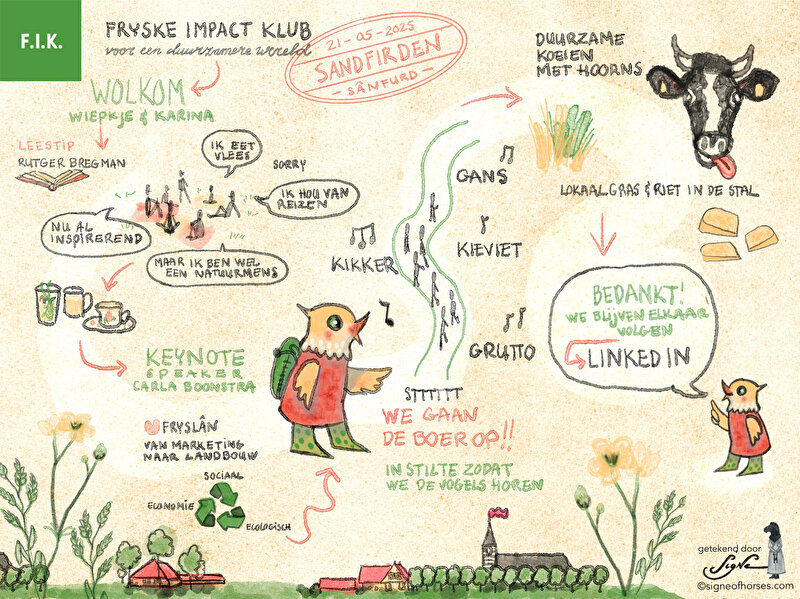 F.I.K.
FRYSKE IMPACT KLUB
voor een duurzamere wereld
21-05-2025
SANDFIRDEN
- SÂNFURD -
WOLKOM
WIEPKJE & KARINA
LEESTIP
RUTGER BREGMAN
IK EET
VLEES
SORRY
IK HOU VAN
REIZEN
NU AL
INSPIREREND
MAAR IK BEN WEL
EEN NATUURMENS
KEYNOTE
SPEAKER
CARLA BOONSTRA
FRYSLÂN
VAN MARKETING
NAAR LANDBOUW
SOCIAAL
ECONOMIE
ECOLOGISCH
GANS
KIKKER
KIEVIET
GRUTTO
STTTTTT
WE GAAN
DE BOER OP!!
IN STILTE ZODAT
WE DE VOGELS HOREN
DUURZAME
KOEIEN
MET HOORNS
LOKAAL GRAS & RIET IN DE STAL
BEDANKT!
WE BLIJVEN ELKAAR
VOLGEN
LINKED IN
getekend door
Signe
©signeofhorses.com